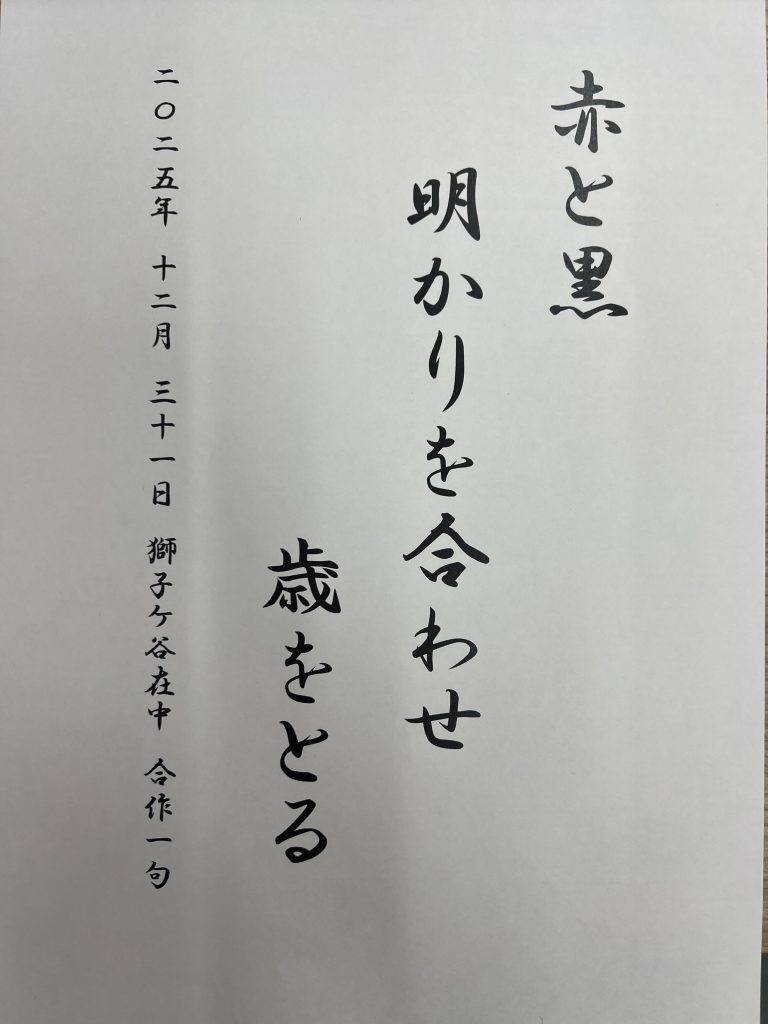 赤と黒
明かりを合わせ
歳をとる
二〇二五年 十二月 三十一日 獅子ケ谷在中 合作一句